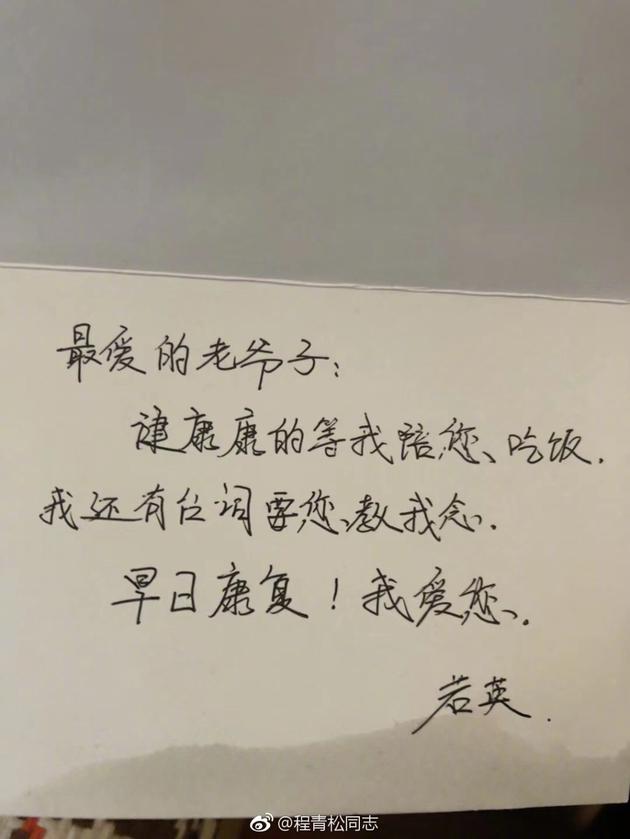 最爱的老爷子：
健康康的等我陪您、吃饭.
我还有台词要您、教我念.
早日康复！我爱您.
若英.
@程青松同志